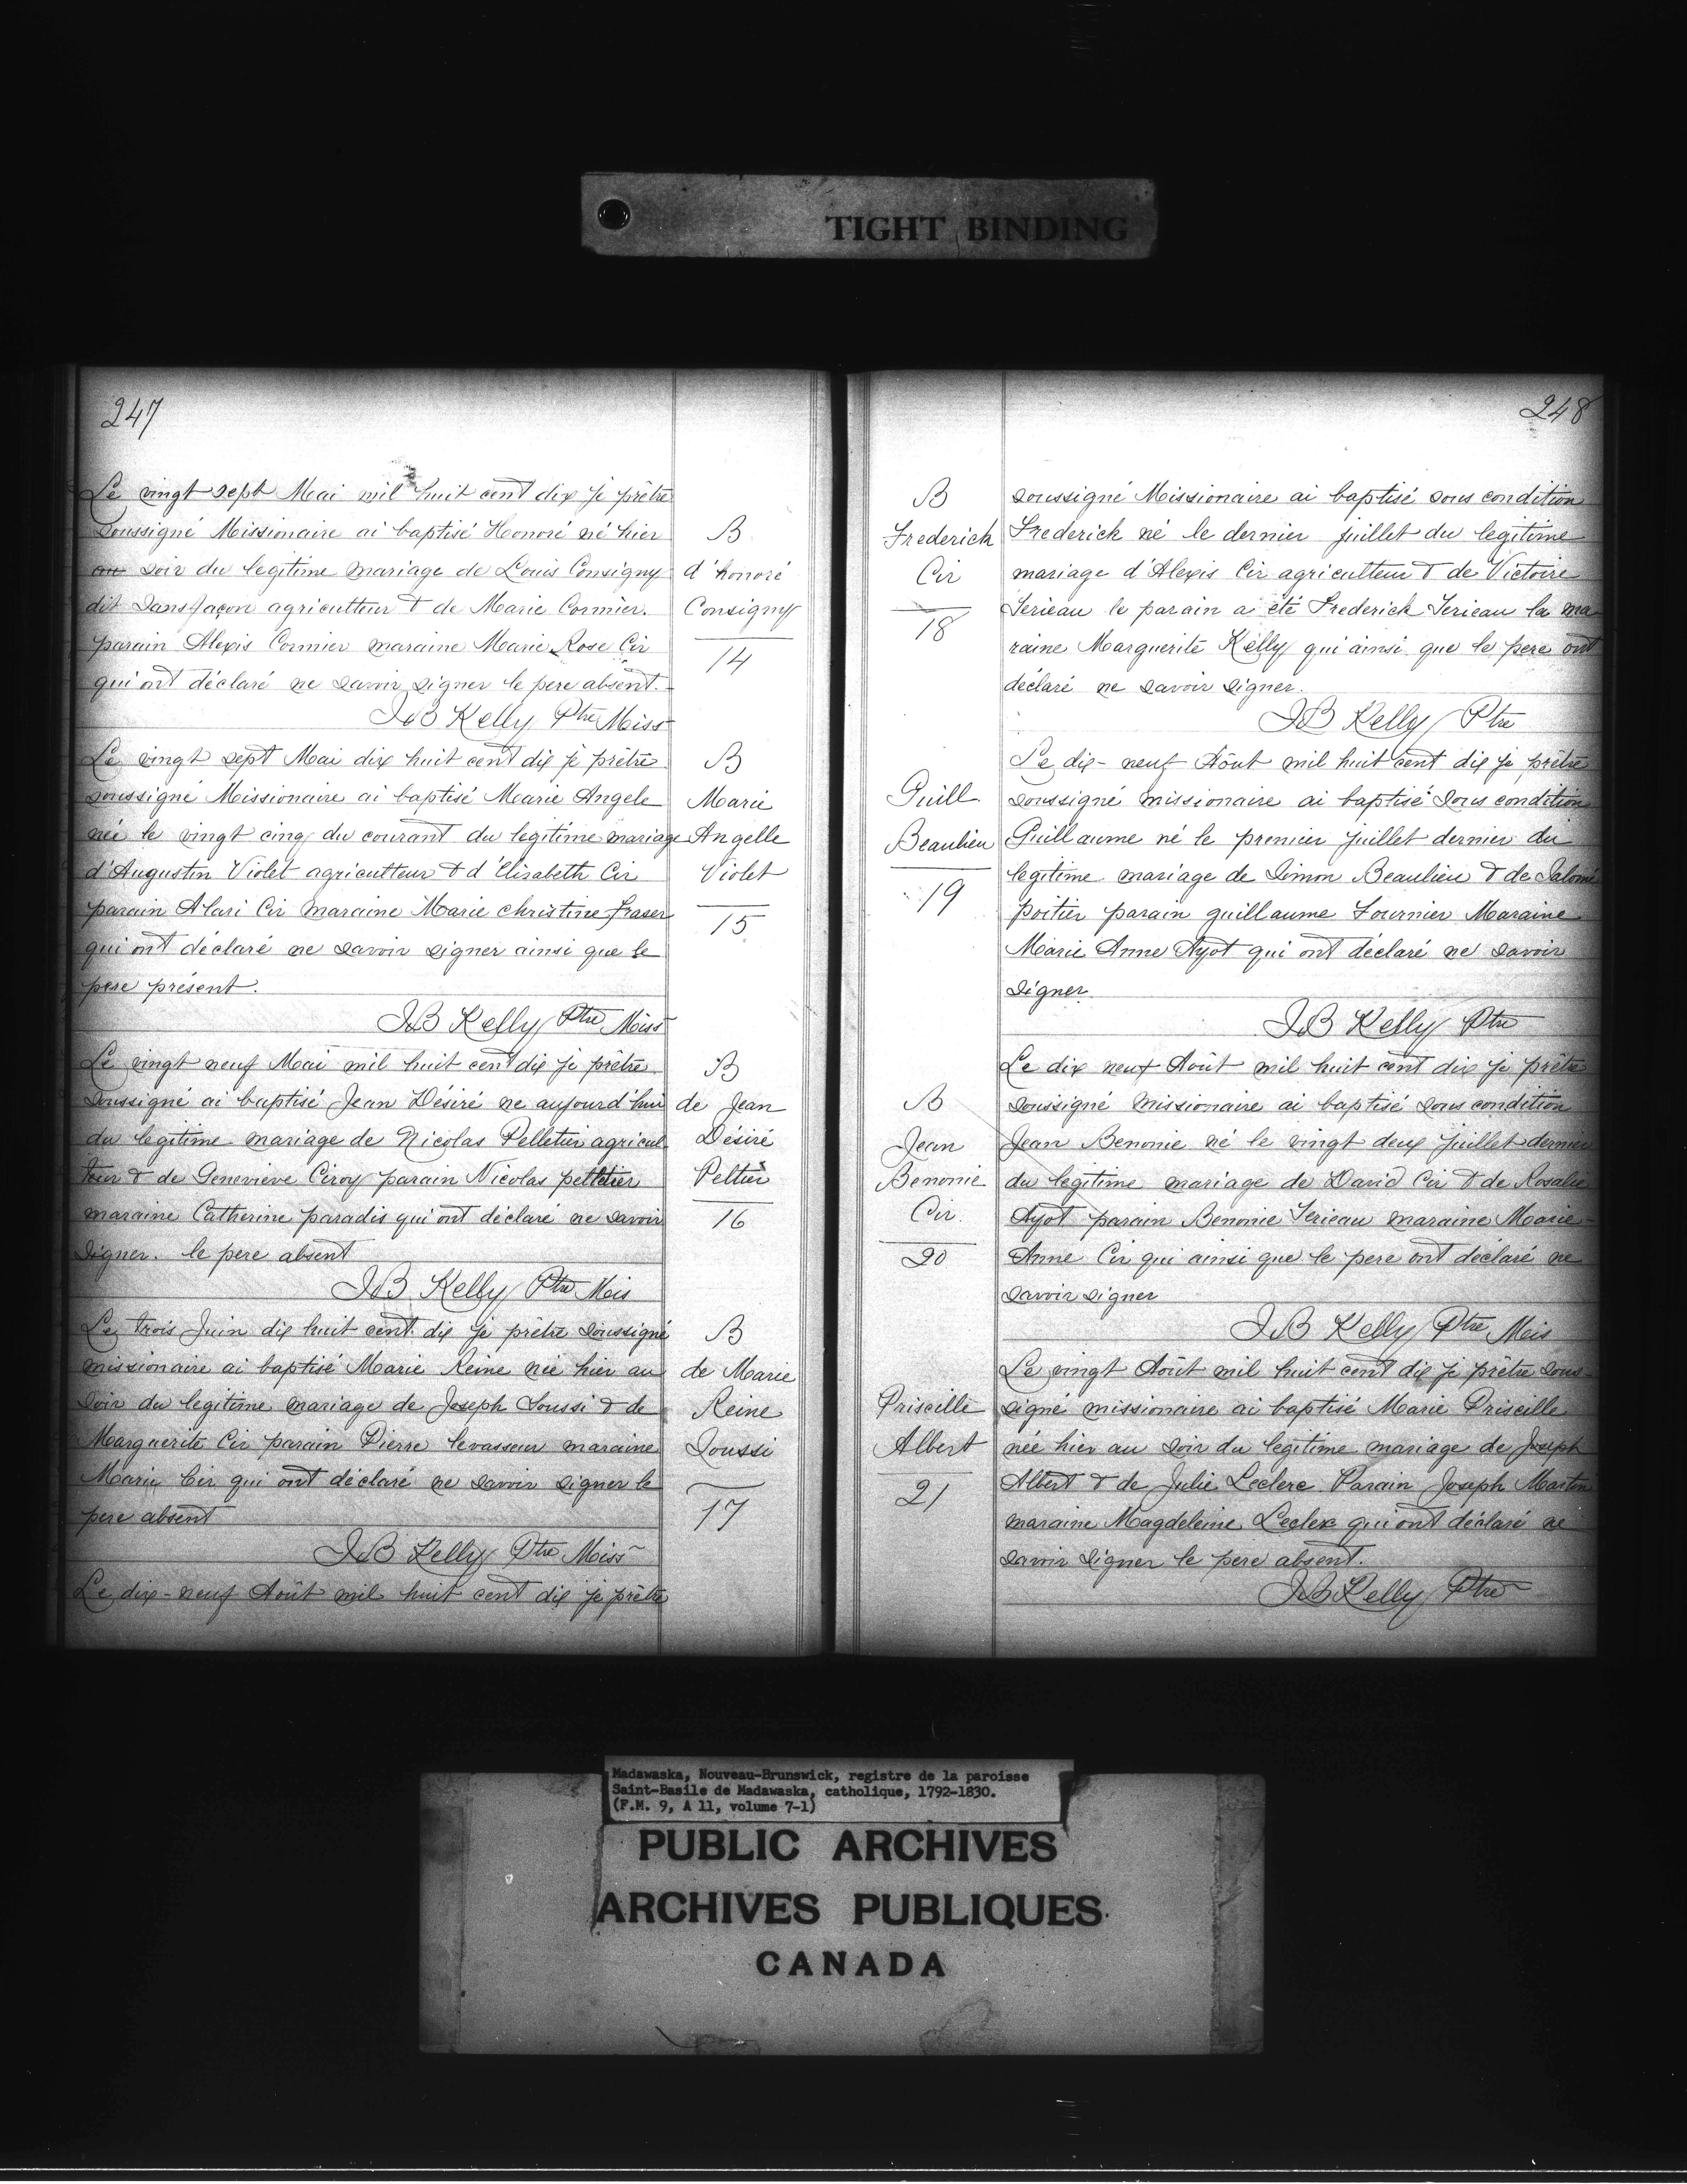 TIGHT BINDING
247
Le vingt sept Mai mil huit cent dix je prêtre
soussigné Missionaire ai baptisé Honoré né hier
au soir du legitime mariage de Louis Consigny
dit Sansfaçon agriculteur & de Marie Cormier.
parain Alexis Cormier maraine Marie Rose Cir
qui ont déclaré ne savoir signer le pere absent.
JB Kelly Ptre Miss
B
d'honoré
Consigny
14
Le vingt sept Mai dix huit cent dix je prêtre
soussigné Missionaire ai baptisé Marie Angele
née le vingt cinq du courant du legitime mariage
d'Augustin Violet agriculteur & d'Elisabeth Cir
parain Alari Cir maraine Marie christine fraser
qui ont déclaré ne savoir signer ainsi que le
pere présent.
JB Kelly Ptre Miss
B
Marie
Angelle
Violet
15
Le vingt neuf Mai mil huit cent dix je prêtre
soussigné ai baptisé Jean Désiré ne aujourd'hui
du legitime mariage de Nicolas Pelletier agricul
teur & de Genevieve Ciroy parain Nicolas pelletier
maraine Catherine paradis qui ont déclaré ne savoir
signer. le pere absent
JB Kelly Ptre Mis
B
de Jean
Désiré
Peltier
16
Le trois Juin dix huit cent dix je prêtre soussigné
missionaire ai baptisé Marie Reine née hier au
soir du legitime mariage de Joseph Soussi & de
Marguerite Cir parain Pierre levasseur maraine
Marie Cir qui ont déclaré ne savoir signer le
pere absent
JB Kelly Ptre Miss
B
de Marie
Reine
Soussi
17
Le dix-neuf Août mil huit cent dix je prêtre
248
B
Frederick
Cir
18
soussigné Missionaire ai baptisé sous condition
Frederick né le dernier juillet du legitime
mariage d'Alexis Cir agriculteur & de Victoire
Terieau le parain a été Frederick Terieau la ma
raine Marguerite Kelly qui ainsi que le pere ont
déclaré ne savoir signer.
JB Kelly Ptre
Guill
Beaulieu
19
Le dix-neuf Août mil huit cent dix je prêtre
soussigné missionaire ai baptisé sous condition
Guillaume né le premier juillet dernier du
legitime mariage de Simon Beaulieu & de Salomé
poitier parain guillaume Fournier Maraine
Marie Anne Ayot qui ont déclaré ne savoir
signer
JB Kelly Ptre
B
Jean
Benonie
Cir.
20
Le dix neuf Août mil huit cent dix je prêtre
soussigné missionaire ai baptisé sous condition
Jean Benonie né le vingt deux juillet dernier
du legitime mariage de David Cir & de Rosalie
Ayot parain Benonie Terieau maraine Marie-
Anne Cir qui ainsi que le pere ont déclaré ne
savoir signer
JB Kelly Ptre Mis
Priscille
Albert
21
Le vingt Août mil huit cent dix je prêtre sous-
signé missionaire ai baptisé Marie Priscille
née hier au soir du legitime mariage de Joseph
Albert & de Julie Leclerc Parain Joseph Martin
maraine Magdeleine Leclex qui ont déclaré ne
savoir signer le pere absent.
JB Kelly Ptre
Madawaska, Nouveau-Brunswick, registre de la paroisse
Saint-Basile de Madawaska, catholique, 1792-1830.
(F.M. 9, A 11, volume 7-1)
PUBLIC ARCHIVES
ARCHIVES PUBLIQUES
CANADA